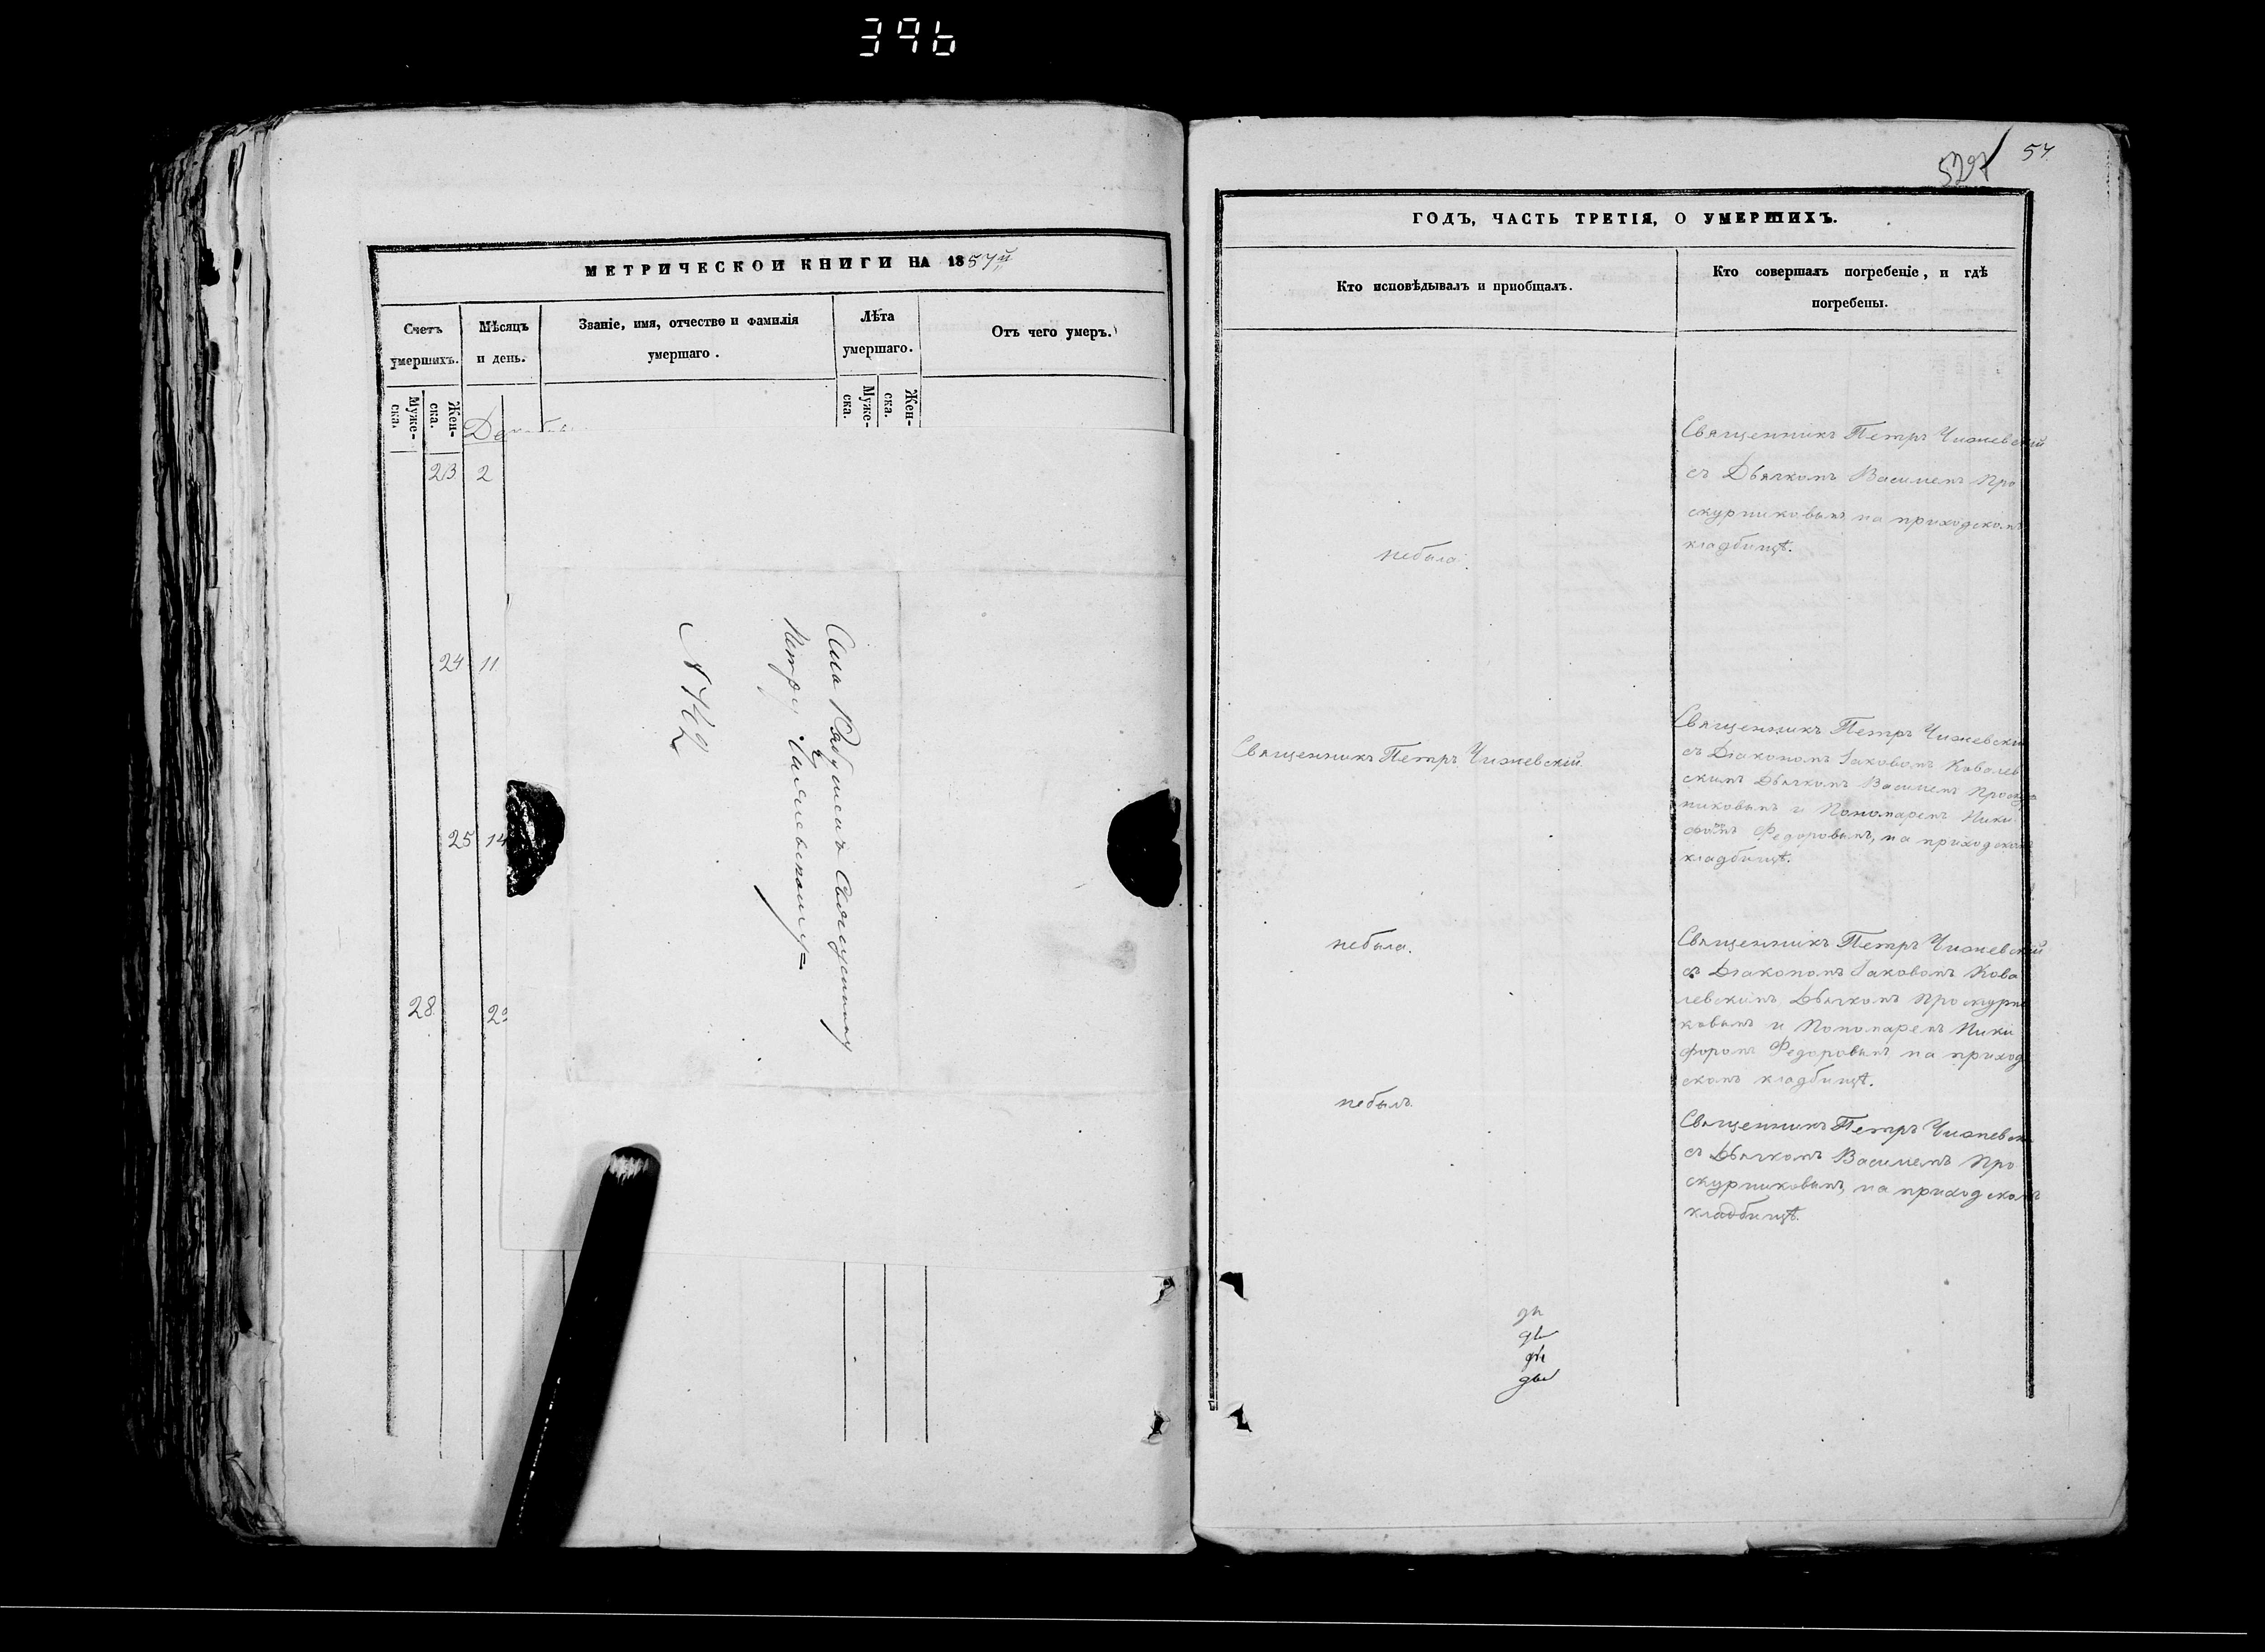 396
МЕТРИЧЕСКОЙ КНИГИ НА 1857й
Счетъ умершихъ.
Мѣсяцъ и день.
Званіе, имя, отчество и фамилія умершаго.
Лѣта умершаго.
Отъ чего умеръ.
Муже-
ска.
Жен-
ска.
Муже-
ска.
Жен-
ска.
23 2
24 11
25 14
28
Священнику
Петру
№
57
527
ГОДЪ, ЧАСТЬ ТРЕТІЯ, О УМЕРШИХЪ.
Кто исповѣдывалъ и пріобщалъ.
Кто совершалъ погребеніе, и гдѣ
погребены.
небыла.
Священникъ Петръ Чижевскій
съ Дьячкомъ Василемъ Про
скурниковымъ, на приходскомъ
кладбищѣ.
Священникъ Петръ Чижевскій.
Священникъ Петръ Чижевскій
съ Діакономъ Іаковомъ Ковалев
скимъ Дьячкомъ Василемъ Проскур
никовымъ и Пономаремъ Ники
фомъ Федоровымъ, на приходском
кладбищѣ.
небыла.
Священникъ Петръ Чижевскій
съ Діакономъ Іаковомъ Кова
левскимъ, Дьячкомъ Проскурни
ковымъ и Пономаремъ Ники
форомъ Федоровымъ на приход
скомъ кладбищѣ.
небылъ.
Священникъ Петръ Чижевскі
съ Дьячкомъ Василемъ Про
скурниковымъ, на приходскомъ
кладбищѣ.